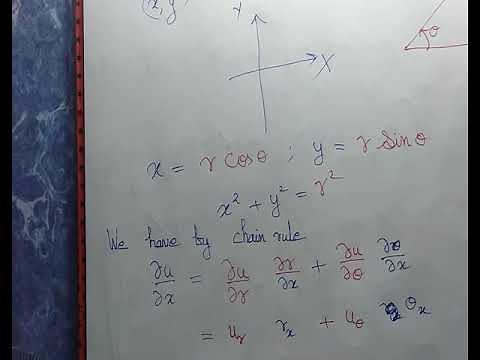 (x, y)
Y
θ
X
x = r cosθ ; y = r sinθ
x² + y² = r²
We have by chain rule
∂u/∂x = ∂u/∂r ∂r/∂x + ∂u/∂θ ∂θ/∂x
= u_r r_x + u_θ θ_x